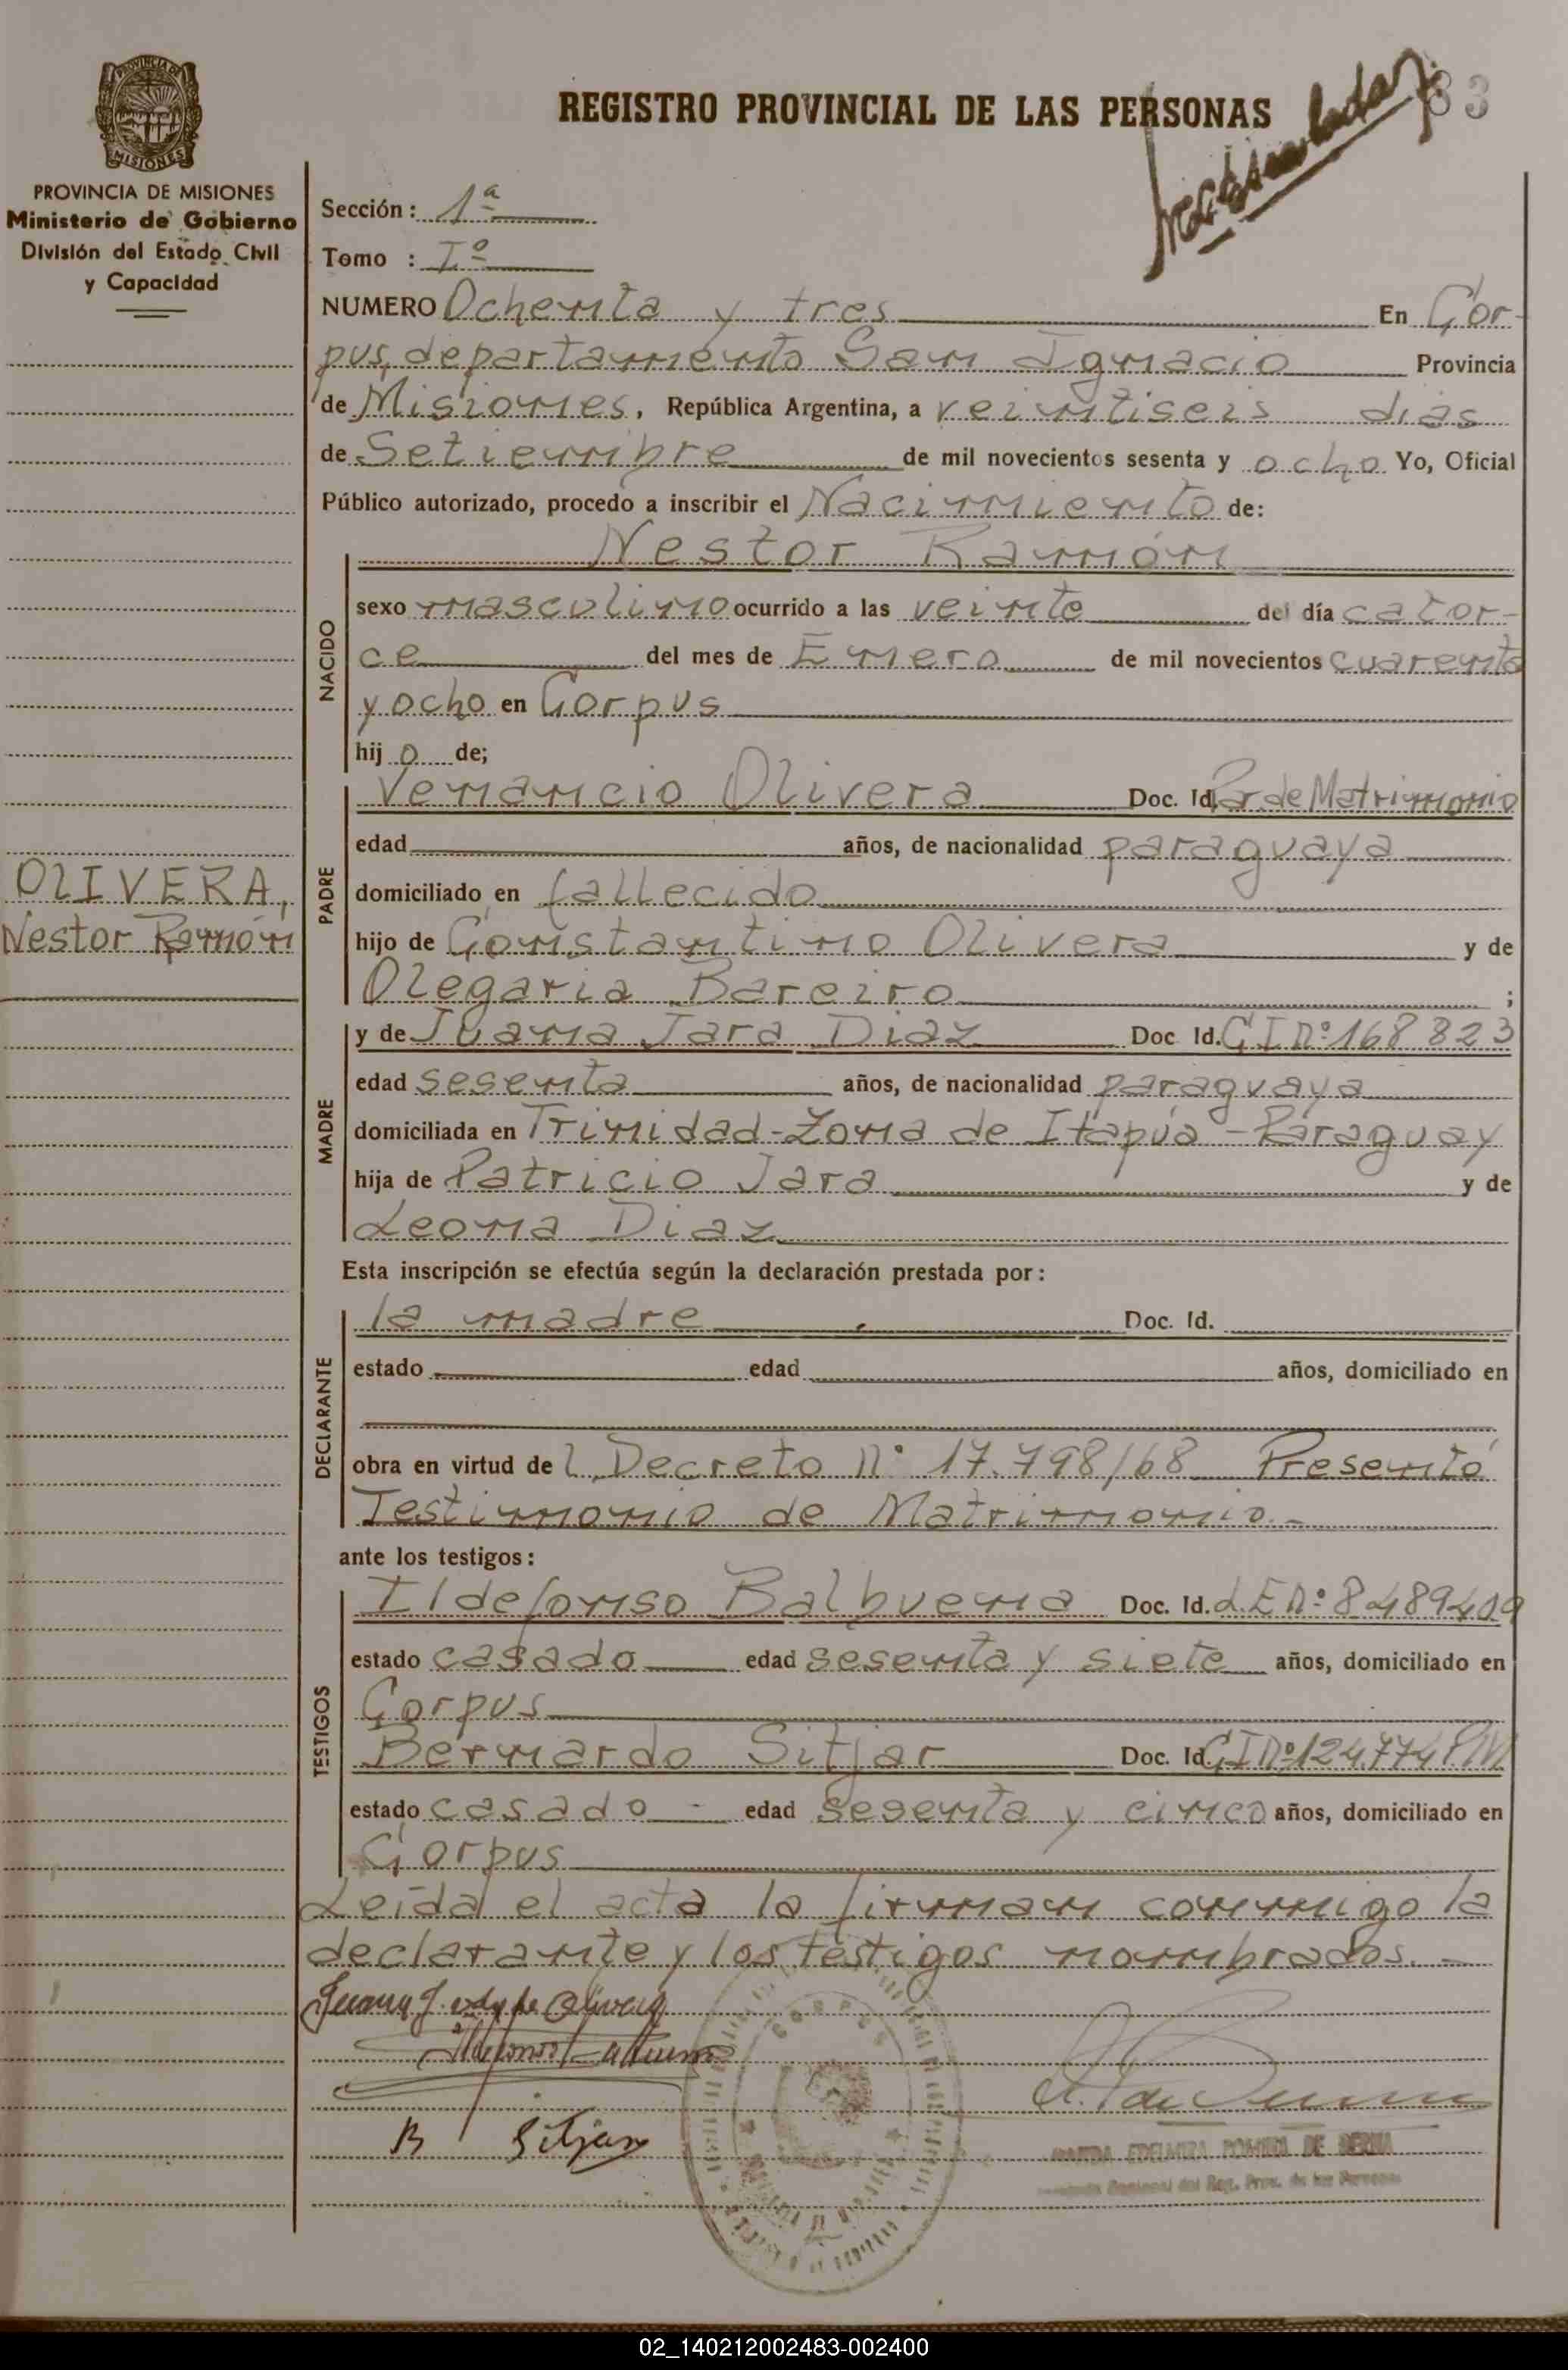 REGISTRO PROVINCIAL DE LAS PERSONAS
83
PROVINCIA DE MISIONES
Ministerio de Gobierno
División del Estado Civil
y Capacidad
Sección: 1ª
Tomo : Iº
NUMERO Ochenta y tres En Cor-
pus, departamento San Ignacio Provincia
de Misiones, República Argentina, a veintiseis dias
de Setiembre de mil novecientos sesenta y ocho Yo, Oficial
Público autorizado, procedo a inscribir el Nacimiento de:
Nestor Ramón
NACIDO
sexo masculino ocurrido a las veinte del día cator-
ce del mes de Enero de mil novecientos cuarenta
y ocho en Corpus
hijo de;
PADRE
Venancio Olivera Doc. Id. Par. de Matrimonio
edad años, de nacionalidad paraguaya
domiciliado en fallecido
OLIVERA,
Nestor Ramón
hijo de Constantino Olivera y de
Olegaria Bareiro ;
MADRE
y de Juana Jara Diaz Doc Id. C I nº 168 823
edad sesenta años, de nacionalidad paraguaya
domiciliada en Trinidad-Zona de Itapúa-Paraguay
hija de Patricio Jara y de
Leona Diaz
Esta inscripción se efectúa según la declaración prestada por:
DECLARANTE
la madre Doc. Id.
estado edad años, domiciliado en
obra en virtud del Decreto nº 17.798/68 Presentó
Testimonio de Matrimonio.-
ante los testigos:
TESTIGOS
Ildefonso Balbuena Doc. Id. L.E nº 8489409
estado casado edad sesenta y siete años, domiciliado en
Corpus
Bernardo Sitjar Doc. Id. C I nº 124.774
estado casado - edad sesenta y cinco años, domiciliado en
Corpus
Leída el acta la firman conmigo la
declarante y los testigos nombrados.-
B Sitjar
CORPUS
DE BERNA
Reg. Prov. de las Personas
02_140212002483-002400